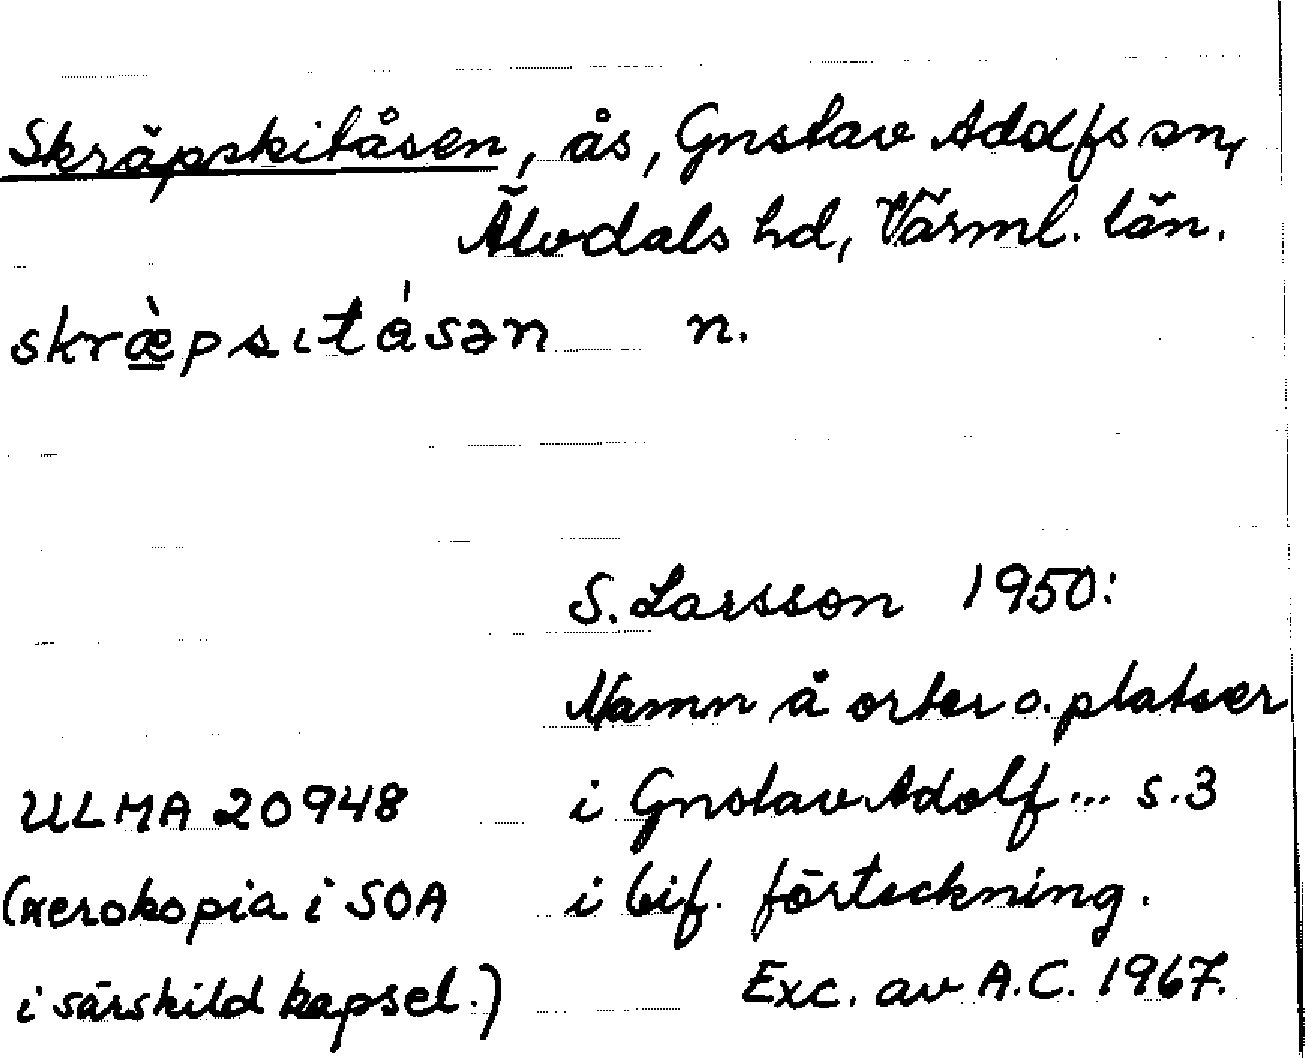 Skräpskitåsen, ås, Gustav Adolfs sn,
Älvdals hd, Värml. län.
skræ̀psıtåsən n.
S. Larsson 1950:
Namn å orter o. platser
i Gustav Adolf... s.3
i bif. förteckning.
Exc. av A.C. 1967.
ULMA 20948
(xerokopia i SOA
i särskild kapsel.)